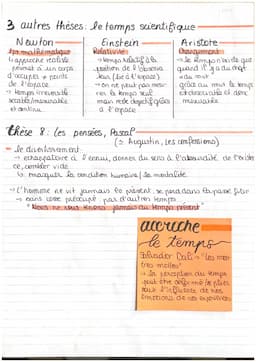 3 autres thèses: le temps scientifique
Newton
tps mathématique
approche réaliste
l'espace
→ temps mesurable
et continu
Einstein
Relativité
→ temps relatif à la
position de l'observa
teur (lié à l'espace)
→ on ne peut pas mesu
rer le temps seul
mais redef objectif grâce
à l'espace
Aristote
Changement
→ le temps n'existe que
quand il y a du chgt
au mvt
grâce au mvt le temps
est discontinu et donc
mesurable
thèse 8: les pensées, Pascal
(≥ Augustin, les confessions)
- le divertissement
→ échappatoire à l'ennui, donner du sens à l'absurdité de l'exiden
ce, combler vide
↳ masquer la condition humaine / la mortalité
→ L'homme ne vit jamais le présent, se perd dans le passé futur
→ sans cesse préoccupé par d'autres temps
"Nous ne nous tenons jamais au temps présent"
accroche
le temps
Salvador Dalí → "les mon
tres molles"
→ la perception du temps
peut être déformée le plus
sous l'influence de nos
émotions de nos expériences